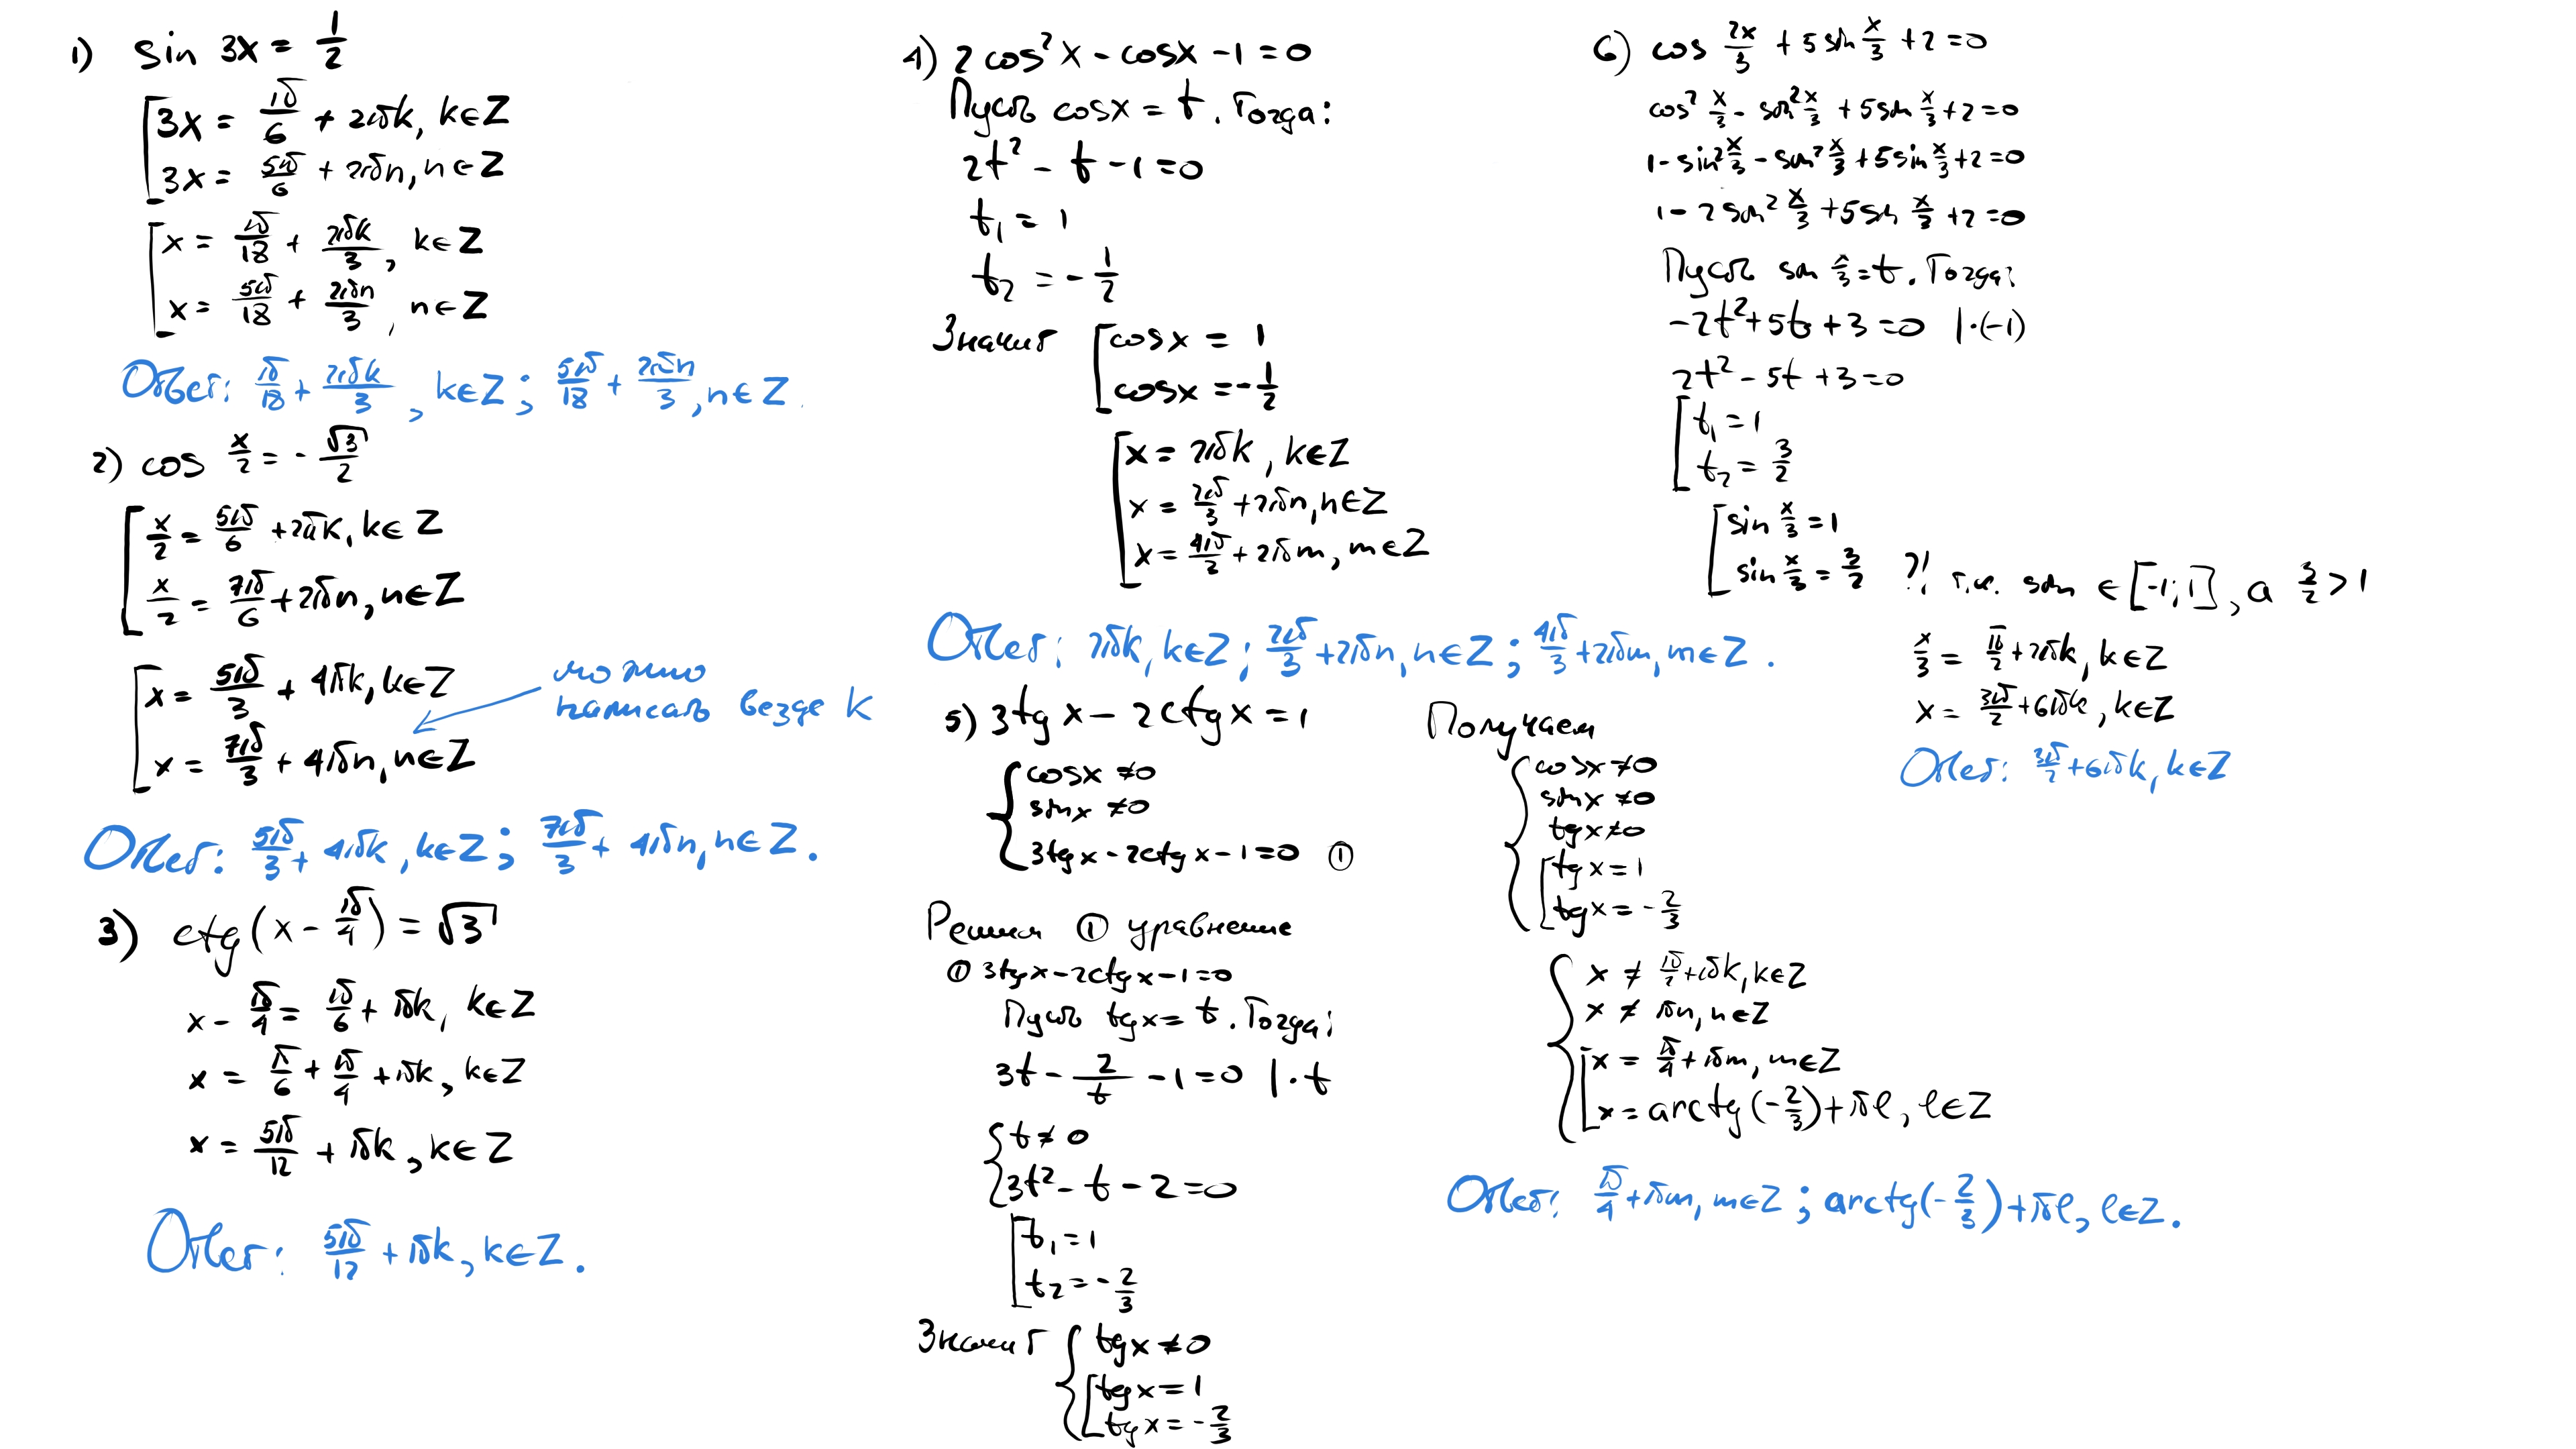 1) sin 3x = 1/2
[3x = π/6 + 2πk, k∈Z
3x = 5π/6 + 2πn, n∈Z
[x = π/18 + 2πk/3, k∈Z
x = 5π/18 + 2πn/3, n∈Z
Ответ: π/18 + 2πk/3, k∈Z; 5π/18 + 2πn/3, n∈Z
2) cos x/2 = -√3/2
[x/2 = 5π/6 + 2πk, k∈Z
x/2 = 7π/6 + 2πn, n∈Z
[x = 5π/3 + 4πk, k∈Z
x = 7π/3 + 4πn, n∈Z
можно
написать везде k
Ответ: 5π/3 + 4πk, k∈Z; 7π/3 + 4πn, n∈Z.
3) ctg(x - π/4) = √3
x - π/4 = π/6 + πk, k∈Z
x = π/6 + π/4 + πk, k∈Z
x = 5π/12 + πk, k∈Z
Ответ: 5π/12 + πk, k∈Z.
4) 2cos²x - cosx - 1 = 0
Пусть cosx = t. Тогда:
2t² - t - 1 = 0
t₁ = 1
t₂ = -1/2
Значит [cosx = 1
cosx = -1/2
[x = 2πk, k∈Z
x = 2π/3 + 2πn, n∈Z
x = 4π/3 + 2πm, m∈Z
Ответ: 2πk, k∈Z; 2π/3 + 2πn, n∈Z; 4π/3 + 2πm, m∈Z.
5) 3tg x - 2ctg x = 1
{cosx ≠ 0
sinx ≠ 0
3tg x - 2ctg x - 1 = 0 ①
Решим ① уравнение
① 3tgx - 2ctgx - 1 = 0
Пусть tgx = t. Тогда:
3t - 2/t - 1 = 0 |·t
{t ≠ 0
3t² - t - 2 = 0
[t₁ = 1
t₂ = -2/3
Значит {tgx ≠ 0
[tgx = 1
tgx = -2/3
Получаем
{cosx ≠ 0
sinx ≠ 0
tgx ≠ 0
[tgx = 1
tgx = -2/3
{x ≠ π/2 + πk, k∈Z
x ≠ πn, n∈Z
[x = π/4 + πm, m∈Z
x = arctg(-2/3) + πl, l∈Z
Ответ: π/4 + πm, m∈Z; arctg(-2/3) + πl, l∈Z.
6) cos 2x/3 + 5sin x/3 + 2 = 0
cos² x/3 - sin² x/3 + 5sin x/3 + 2 = 0
1 - sin² x/3 - sin² x/3 + 5sin x/3 + 2 = 0
1 - 2sin² x/3 + 5sin x/3 + 2 = 0
Пусть sin x/3 = t. Тогда:
-2t² + 5t + 3 = 0 |·(-1)
2t² - 5t + 3 = 0
[t₁ = 1
t₂ = 3/2
[sin x/3 = 1
sin x/3 = 3/2 ?! т.к. sin ∈ [-1; 1], а 3/2 > 1
x/3 = π/2 + 2πk, k∈Z
x = 3π/2 + 6πk, k∈Z
Ответ: 3π/2 + 6πk, k∈Z